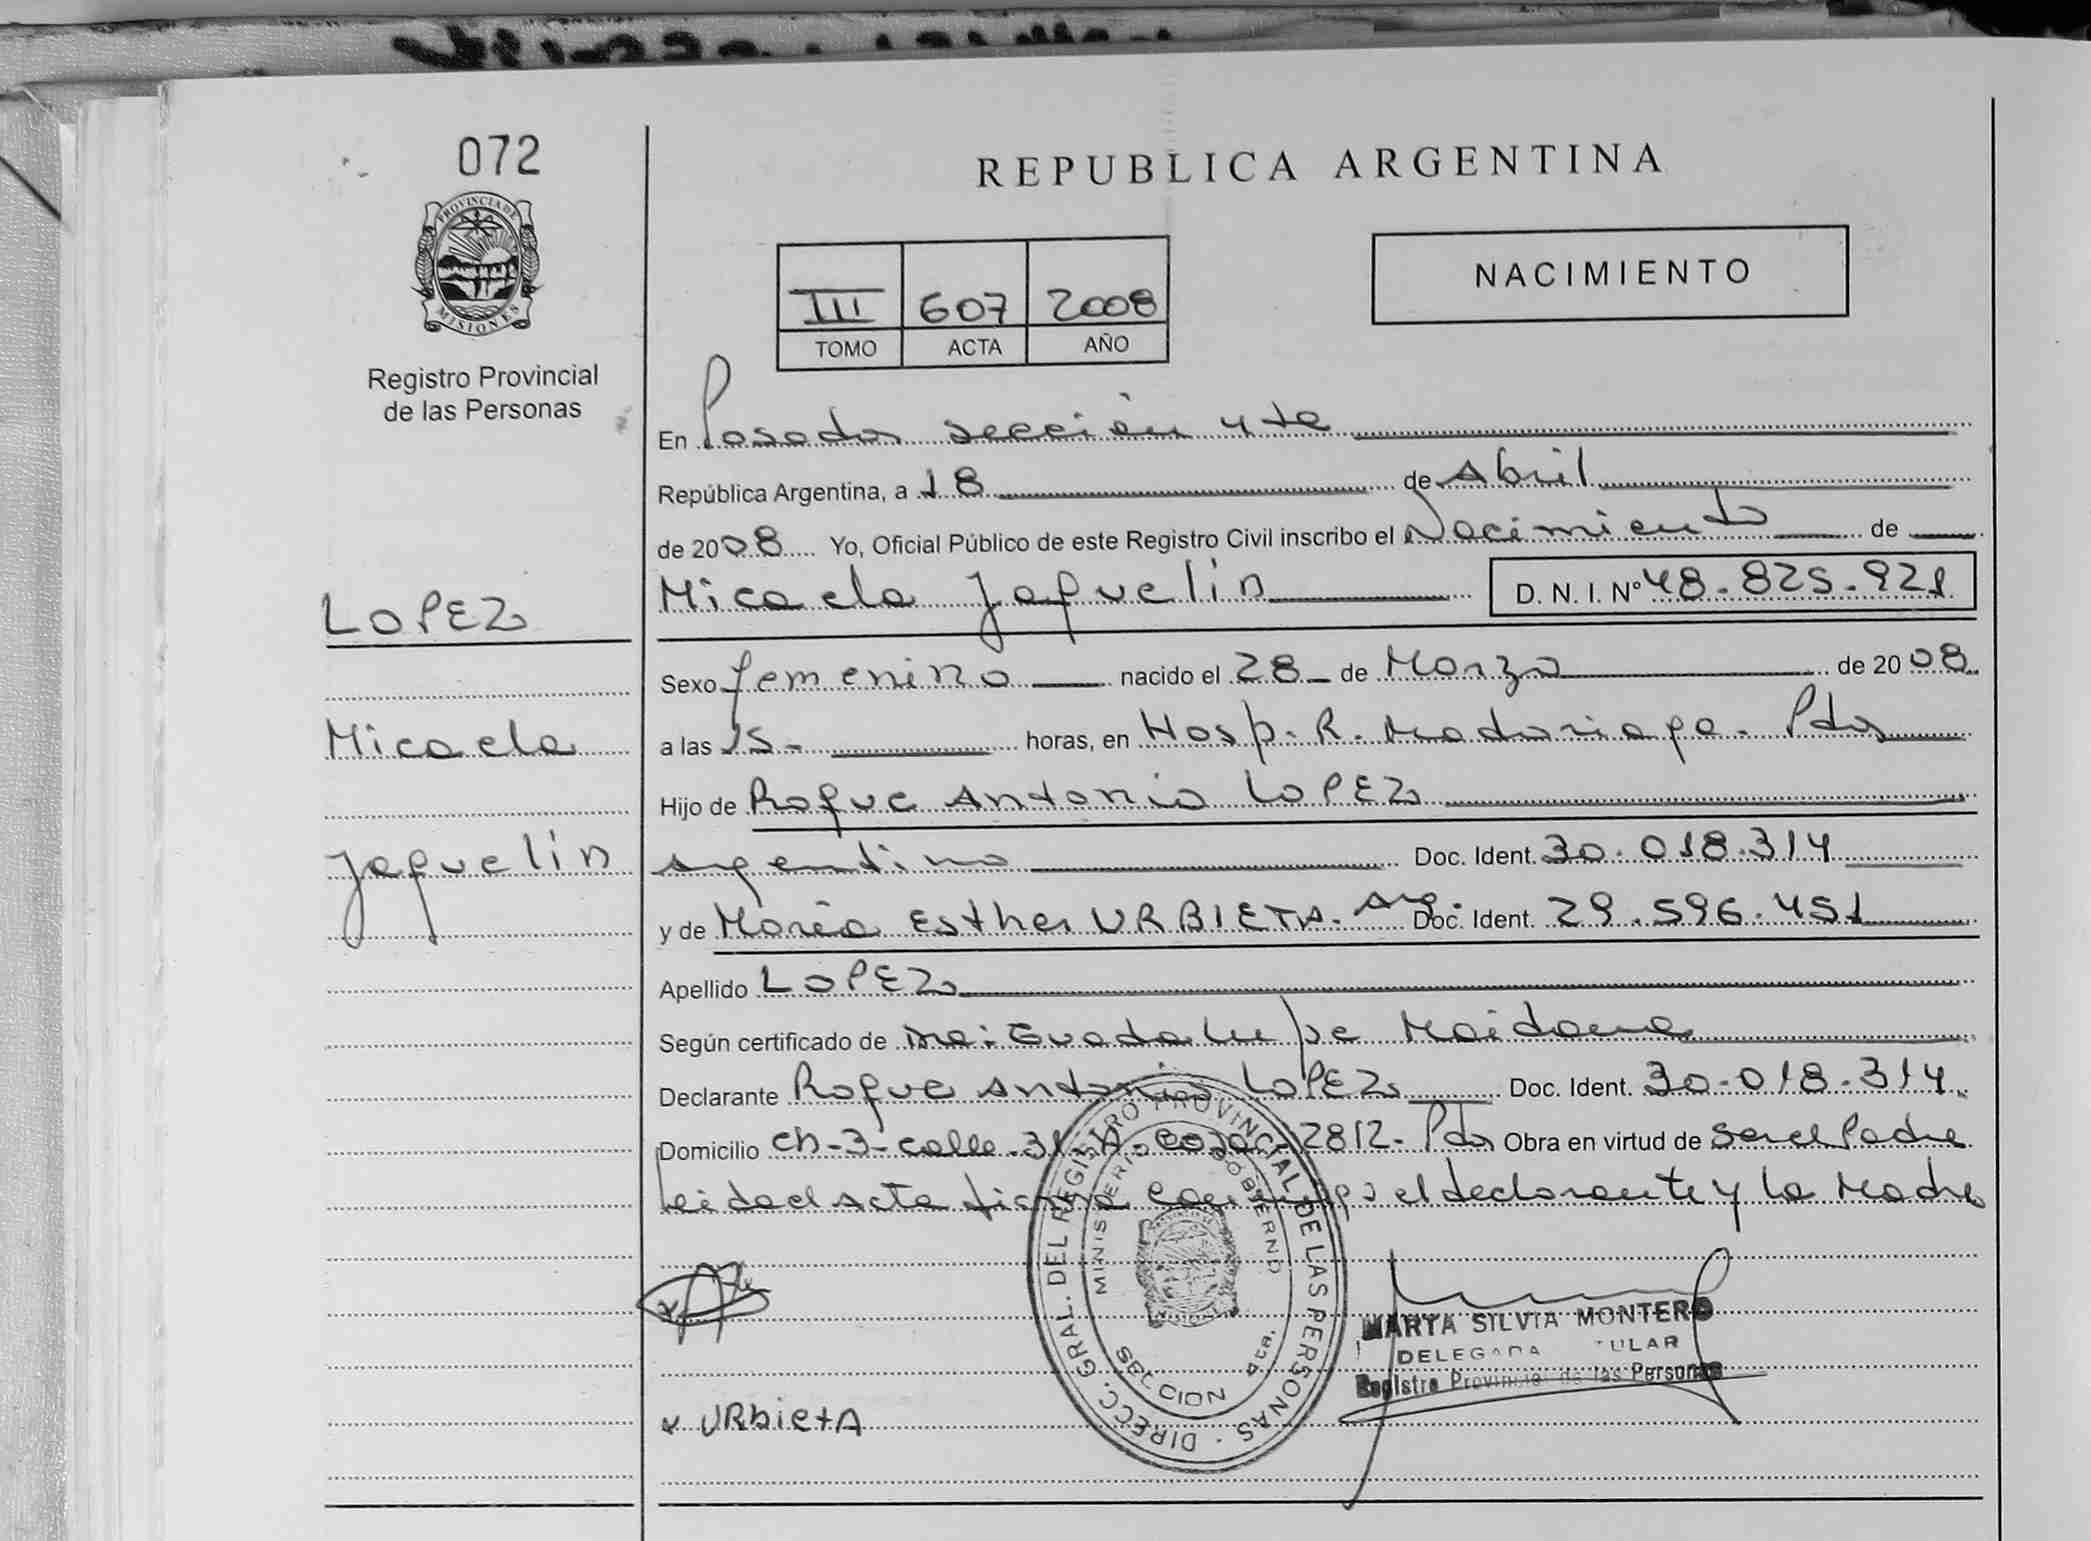 072
PROVINCIA DE
MISIONES
Registro Provincial
de las Personas
LOPEZ
Micaela
Jaquelin
REPUBLICA ARGENTINA
NACIMIENTO
III 607 2008
TOMO ACTA AÑO
En Posadas sección 4ta
República Argentina, a 18 de Abril
de 2008 Yo, Oficial Público de este Registro Civil inscribo el Nacimiento de
Micaela Jaquelin D. N. I. Nº 48.825.921
Sexo femenino nacido el 28 de Marzo de 2008
a las 15- horas, en Hosp. R. Madariaga. Pdas
Hijo de Roque Antonio LOPEZ
argentino Doc. Ident. 30.018.314
y de María Esther URBIETA. Arg. Doc. Ident. 29.596.451
Apellido LOPEZ
Según certificado de Guadalupe Maidana
Declarante Roque Antonio LOPEZ Doc. Ident. 30.018.314
Domicilio Ch-3-calle 31-A- 2812- Pdas Obra en virtud de ser el Padre
Leida el Acta firma el declarante y la Madre
DIRECC. GRAL. DEL REGISTRO PROVINCIAL DE LAS PERSONAS
MINISTERIO GOBIERNO
SECCION 4ta.
MARTA SILVIA MONTERO
DELEGADA TITULAR
Registro Provincial de las Personas
x URbietA